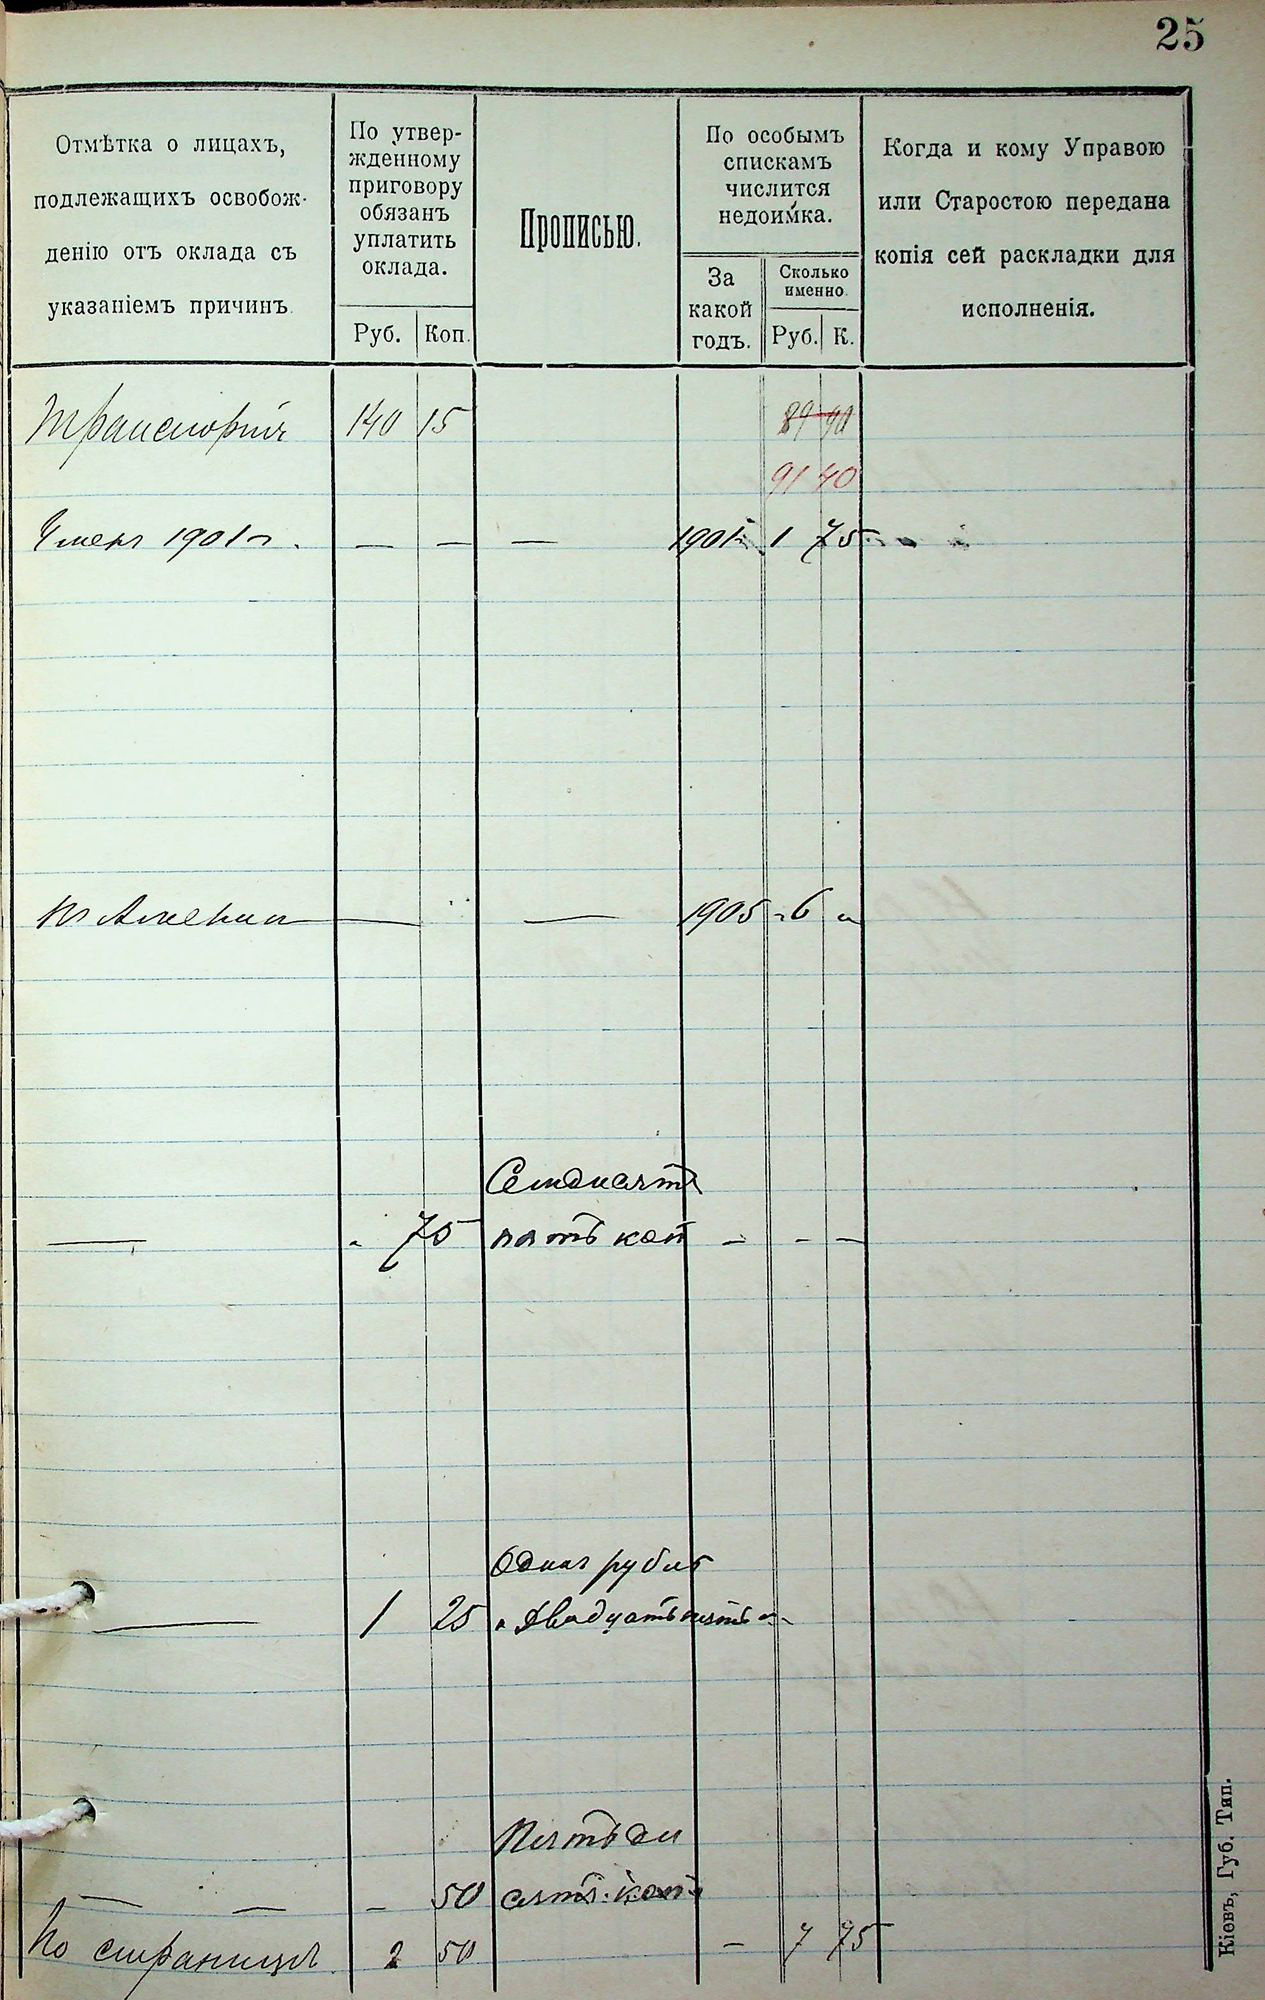 25
Отмѣтка о лицахъ,
подлежащихъ освобож-
денію отъ оклада съ
указаніемъ причинъ.
По утвер-
жденному
приговору
обязанъ
уплатить
оклада.
Руб. Коп.
Прописью.
По особымъ
спискамъ
числится
недоимка.
За
какой
годъ.
Сколько
именно.
Руб. К.
Когда и кому Управою
или Старостою передана
копія сей раскладки для
исполненія.
Транспортъ 140 15 89 90
91 40
Умеръ 1901 г. — — — 1901 г. 1 75
въ Америки — — 1905 - 6 "
Семдисятъ
— - 75 пять коп - - -
Одинъ рубль
— 1 25 " двадцать пять " -
Пятьде
— — - 50 сятъ коп
По страницѣ 2 50 - 7 75
Кіовъ, Губ. Тип.